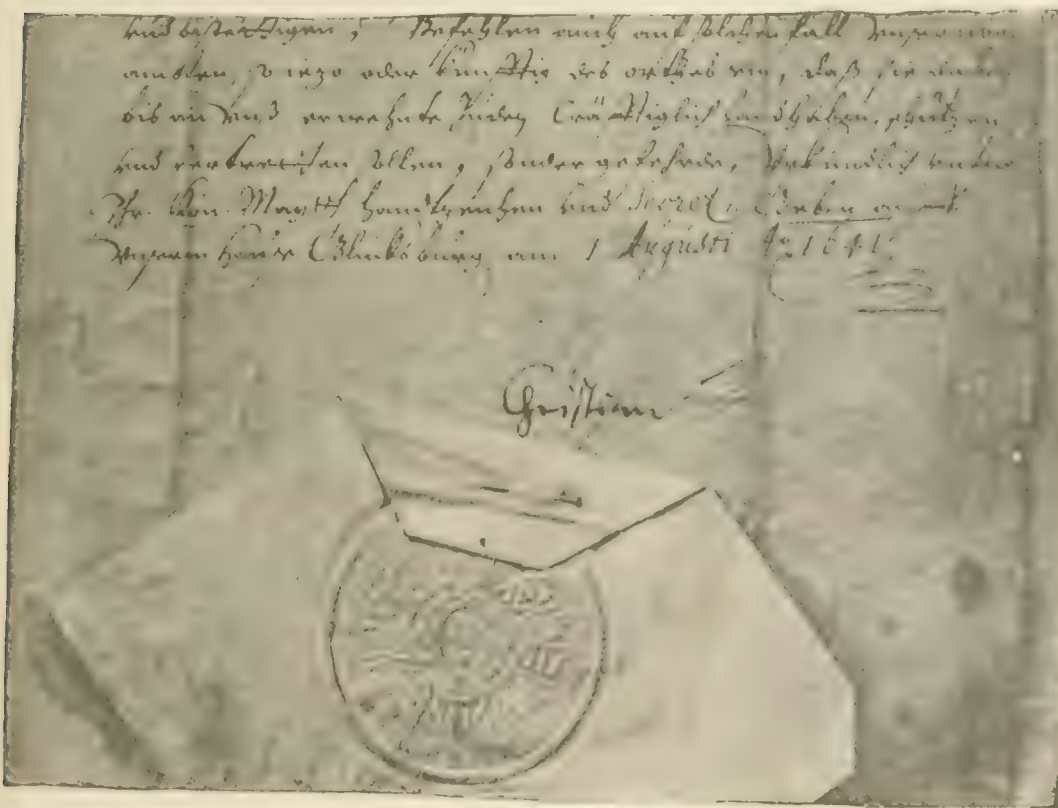 und bestettigen, Befehlen auch auf solchen fall
ambten, so iezo oder künfftig des orthes sein, daß sie
bis an Unß erwehnte Juden Cräfftiglich handhaben, schützen
und vertretten sollen, sonder gefehrde, Urkundlich unter
Ihr. Kön. Maytt handtzeichen und Secret. Geben auf
Unserm hause Glücksburg am 1 Augusti Ao 1641.
Christian